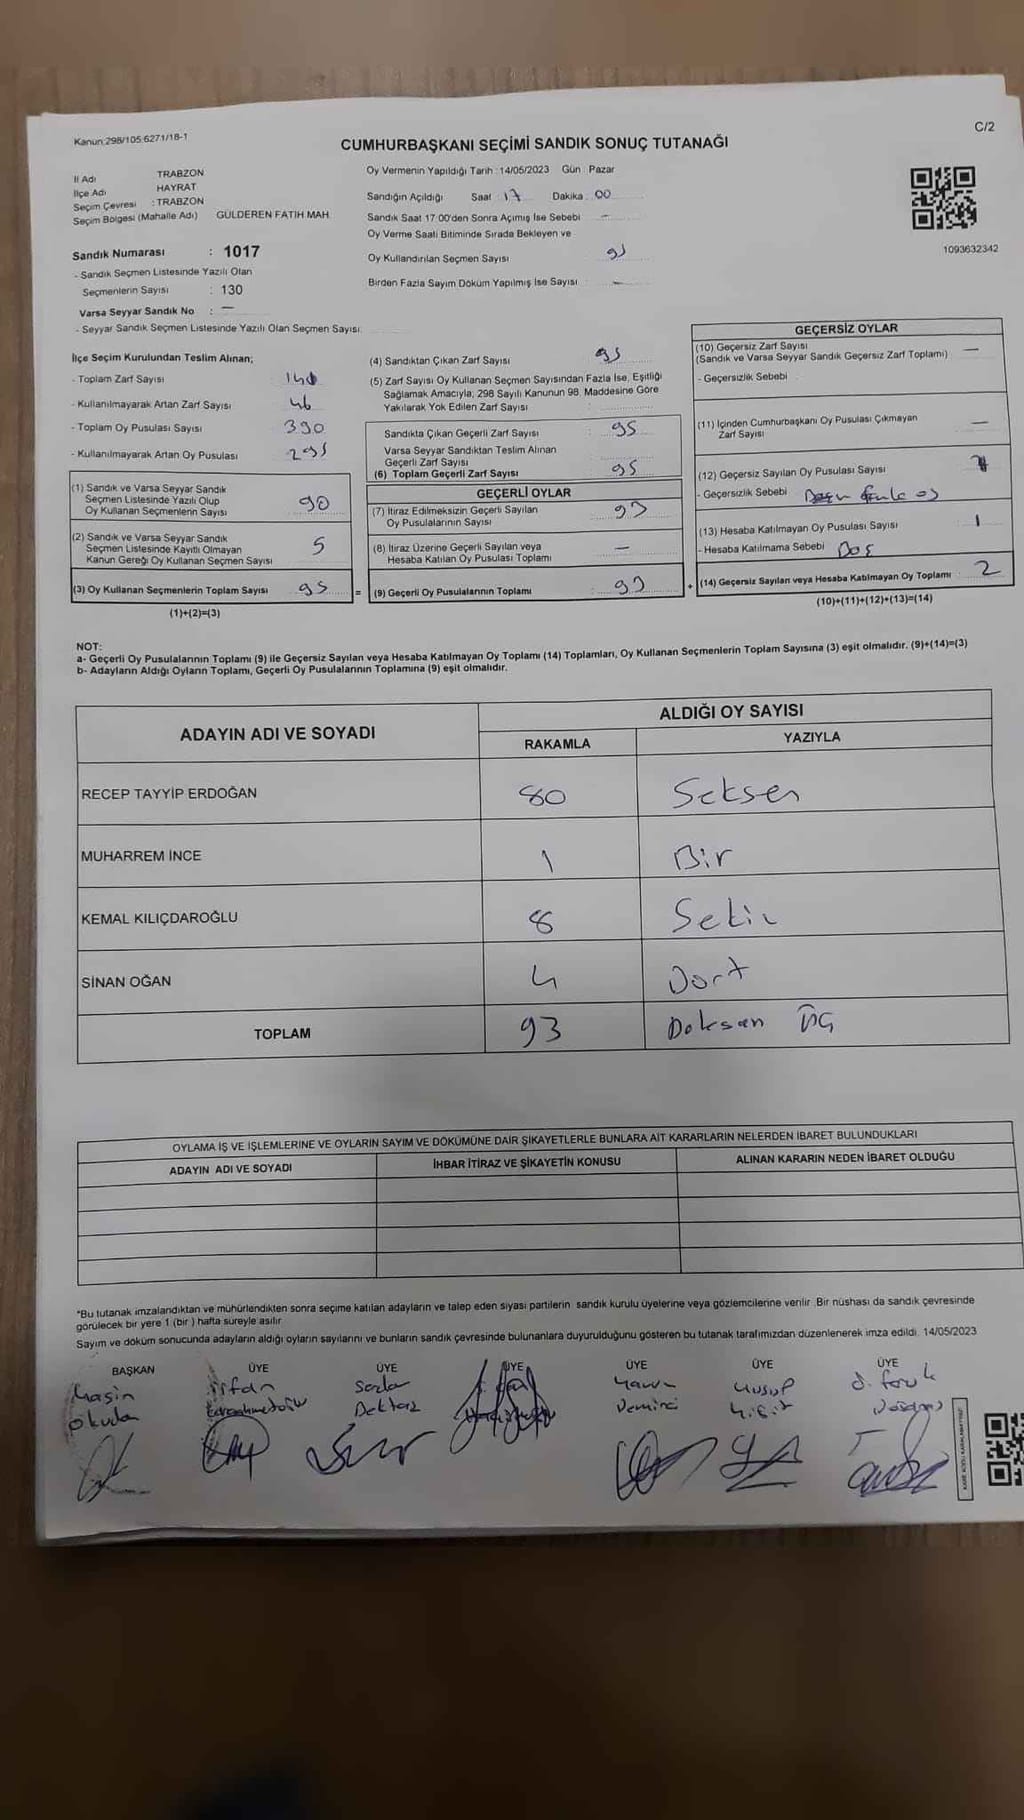 Kanun:298/105 6271/18-1
C/2
CUMHURBAŞKANI SEÇİMİ SANDIK SONUÇ TUTANAĞI
İl Adı TRABZON
İlçe Adı HAYRAT
Seçim Çevresi : TRABZON
Seçim Bölgesi (Mahalle Adı) GÜLDEREN FATİH MAH.
Sandık Numarası : 1017
- Sandık Seçmen Listesinde Yazılı Olan
Seçmenlerin Sayısı : 130
Varsa Seyyar Sandık No : —
- Seyyar Sandık Seçmen Listesinde Yazılı Olan Seçmen Sayısı:
Oy Vermenin Yapıldığı Tarih : 14/05/2023 Gün Pazar
Sandığın Açıldığı Saat 17 Dakika 00
Sandık Saat 17:00'den Sonra Açımış İse Sebebi —
Oy Verme Saati Bitiminde Sırada Bekleyen ve
Oy Kullandırılan Seçmen Sayısı
Birden Fazla Sayım Döküm Yapılmış İse Sayısı : —
1093632342
İlçe Seçim Kurulundan Teslim Alınan;
- Toplam Zarf Sayısı
- Kullanılmayarak Artan Zarf Sayısı 46
- Toplam Oy Pusulası Sayısı 390
- Kullanılmayarak Artan Oy Pusulası 295
(1) Sandık ve Varsa Seyyar Sandık
Seçmen Listesinde Yazılı Olup
Oy Kullanan Seçmenlerin Sayısı 90
(2) Sandık ve Varsa Seyyar Sandık
Seçmen Listesinde Kayıtlı Olmayan
Kanun Gereği Oy Kullanan Seçmen Sayısı 5
(3) Oy Kullanan Seçmenlerin Toplam Sayısı 95 =
(1)+(2)=(3)
(4) Sandıktan Çıkan Zarf Sayısı 95
(5) Zarf Sayısı Oy Kullanan Seçmen Sayısından Fazla İse, Eşitliği
Sağlamak Amacıyla; 298 Sayılı Kanunun 98. Maddesine Göre
Yakılarak Yok Edilen Zarf Sayısı
Sandıkta Çıkan Geçerli Zarf Sayısı : 95
Varsa Seyyar Sandıktan Teslim Alınan
Geçerli Zarf Sayısı
(6) Toplam Geçerli Zarf Sayısı 95
GEÇERLİ OYLAR
(7) İtiraz Edilmeksizin Geçerli Sayılan
Oy Pusulalarının Sayısı 93
(8) İtiraz Üzerine Geçerli Sayılan veya
Hesaba Katılan Oy Pusulası Toplamı —
(9) Geçerli Oy Pusulalarının Toplamı : 93 +
GEÇERSİZ OYLAR
(10) Geçersiz Zarf Sayısı —
(Sandık ve Varsa Seyyar Sandık Geçersiz Zarf Toplamı)
- Geçersizlik Sebebi
(11) İçinden Cumhurbaşkanı Oy Pusulası Çıkmayan
Zarf Sayısı —
(12) Geçersiz Sayılan Oy Pusulası Sayısı
- Geçersizlik Sebebi
(13) Hesaba Katılmayan Oy Pusulası Sayısı 1
- Hesaba Katılmama Sebebi Boş
(14) Geçersiz Sayılan veya Hesaba Katılmayan Oy Toplamı : 2
(10)+(11)+(12)+(13)=(14)
NOT:
a- Geçerli Oy Pusulalarının Toplamı (9) ile Geçersiz Sayılan veya Hesaba Katılmayan Oy Toplamı (14) Toplamları, Oy Kullanan Seçmenlerin Toplam Sayısına (3) eşit olmalıdır. (9)+(14)=(3)
b- Adayların Aldığı Oyların Toplamı, Geçerli Oy Pusulalarının Toplamına (9) eşit olmalıdır.
ADAYIN ADI VE SOYADI
ALDIĞI OY SAYISI
RAKAMLA YAZIYLA
RECEP TAYYİP ERDOĞAN 80 Seksen
MUHARREM İNCE 1 Bir
KEMAL KILIÇDAROĞLU 8 Sekiz
SİNAN OĞAN 4 Dört
TOPLAM 93 Doksan Üç
OYLAMA İŞ VE İŞLEMLERİNE VE OYLARIN SAYIM VE DÖKÜMÜNE DAİR ŞİKAYETLERLE BUNLARA AİT KARARLARIN NELERDEN İBARET BULUNDUKLARI
ADAYIN ADI VE SOYADI İHBAR İTİRAZ VE ŞİKAYETİN KONUSU ALINAN KARARIN NEDEN İBARET OLDUĞU
*Bu tutanak imzalandıktan ve mühürlendikten sonra seçime katılan adayların ve talep eden siyasi partilerin sandık kurulu üyelerine veya gözlemcilerine verilir. Bir nüshası da sandık çevresinde
görülecek bir yere 1 (bir ) hafta süreyle asılır.
Sayım ve döküm sonucunda adayların aldığı oyların sayılarını ve bunların sandık çevresinde bulunanlara duyurulduğunu gösteren bu tutanak tarafımızdan düzenlenerek imza edildi. 14/05/2023
BAŞKAN ÜYE ÜYE ÜYE ÜYE ÜYE ÜYE